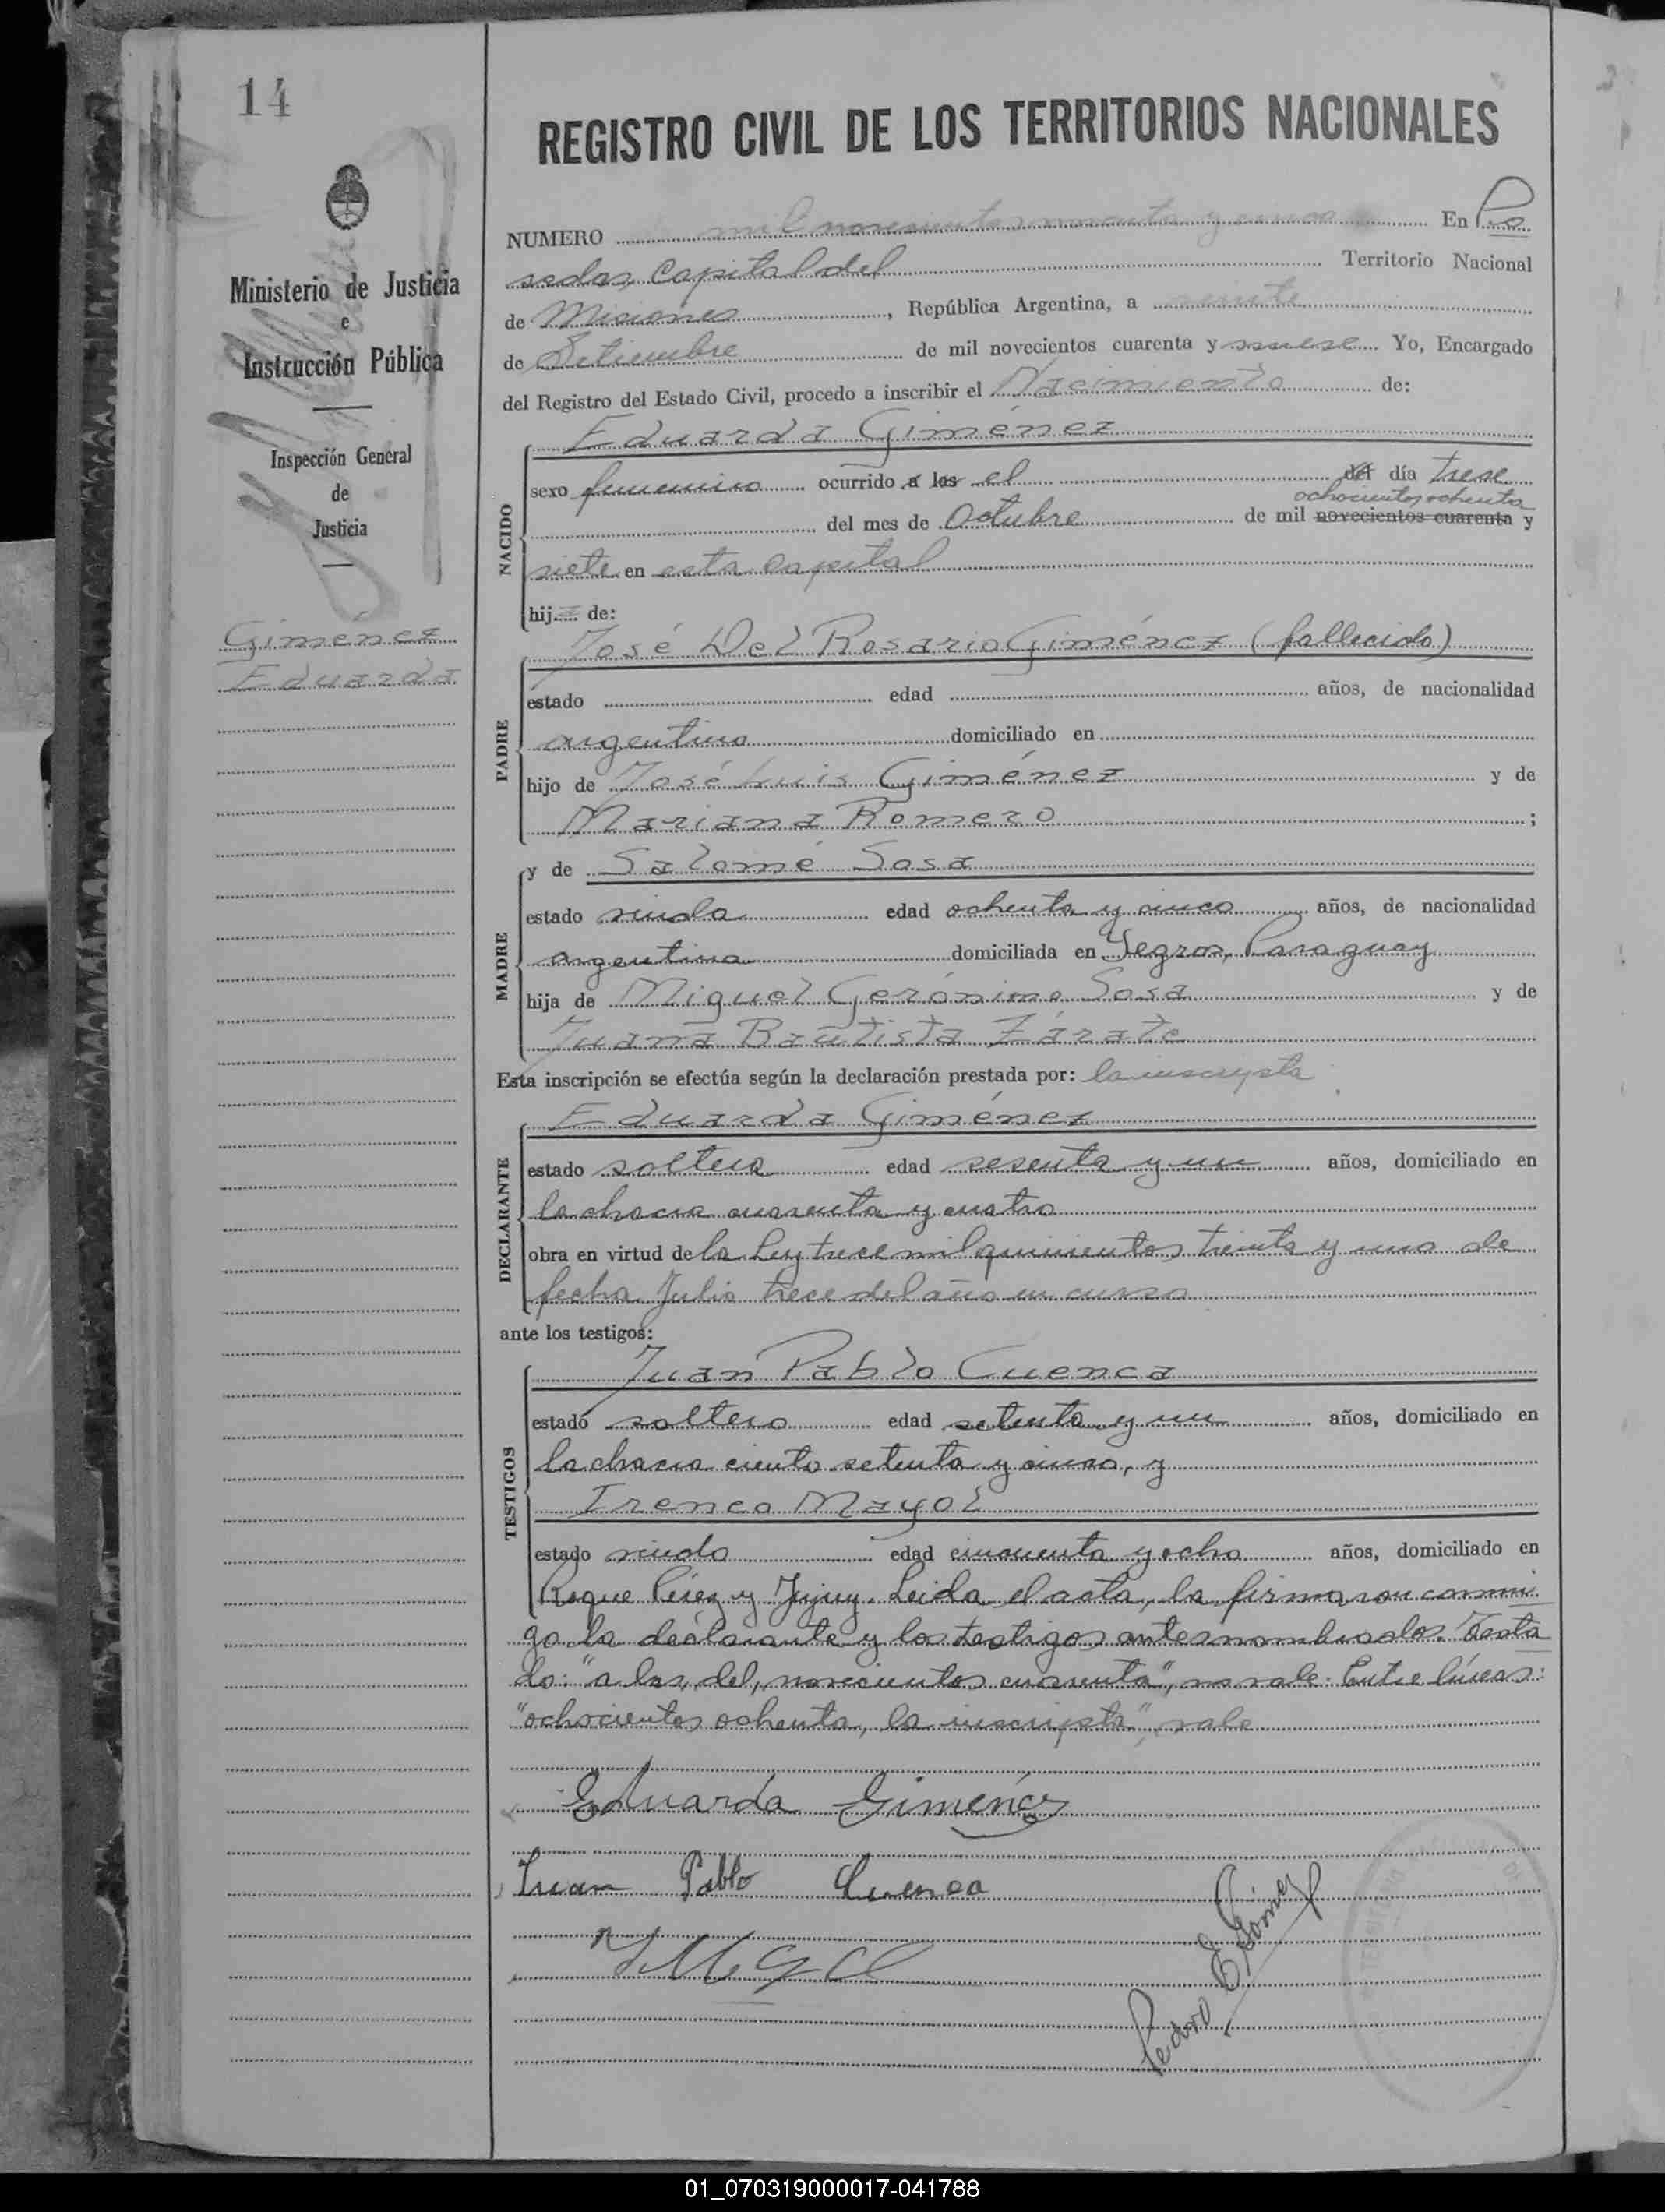 14
REGISTRO CIVIL DE LOS TERRITORIOS NACIONALES
Ministerio de Justicia
e
Instrucción Pública
Inspección General
de
Justicia
Giménez
Eduarda
NUMERO mil novecientos noventa y cinco En Po
sadas, Capital del Territorio Nacional
de Misiones, República Argentina, a veinte
de Setiembre de mil novecientos cuarenta y nueve Yo, Encargado
del Registro del Estado Civil, procedo a inscribir el Nacimiento de:
Eduarda Giménez
NACIDO
sexo femenino ocurrido a las el del día trece
ochocientos ochenta
del mes de Octubre de mil novecientos cuarenta y
siete en esta Capital
hija de:
José Del Rosario Giménez (fallecido)
PADRE
estado edad años, de nacionalidad
argentino domiciliado en
hijo de José Luis Giménez y de
Mariana Romero ;
y de Salomé Sosa
MADRE
estado viuda edad ochenta y cinco años, de nacionalidad
argentina domiciliada en Yegros, Paraguay
hija de Miguel Gerónimo Sosa y de
Juana Bautista Zárate
Esta inscripción se efectúa según la declaración prestada por: la inscripta
Eduarda Giménez
DECLARANTE
estado soltera edad sesenta y un años, domiciliado en
la chacra cuarenta y cuatro
obra en virtud de la Ley trece mil quinientos treinta y uno de
fecha Julio trece del año en curso
ante los testigos:
Juan Pablo Cuenca
TESTIGOS
estado soltero edad setenta y un años, domiciliado en
la chacra ciento setenta y cinco, y
Ireneo Mayol
estado viudo edad cincuenta y ocho años, domiciliado en
Roque Pérez y Jujuy. Leida el acta, la firmaron conmi
go la declarante y los testigos antes nombrados. Testa
do: "a las, del, novecientos cuarenta", no vale. Entre líneas:
"ochocientos ochenta, la inscripta", vale
Eduarda Giménez
Juan Pablo Cuenca
Pedro E Gómez
01_070319000017-041788